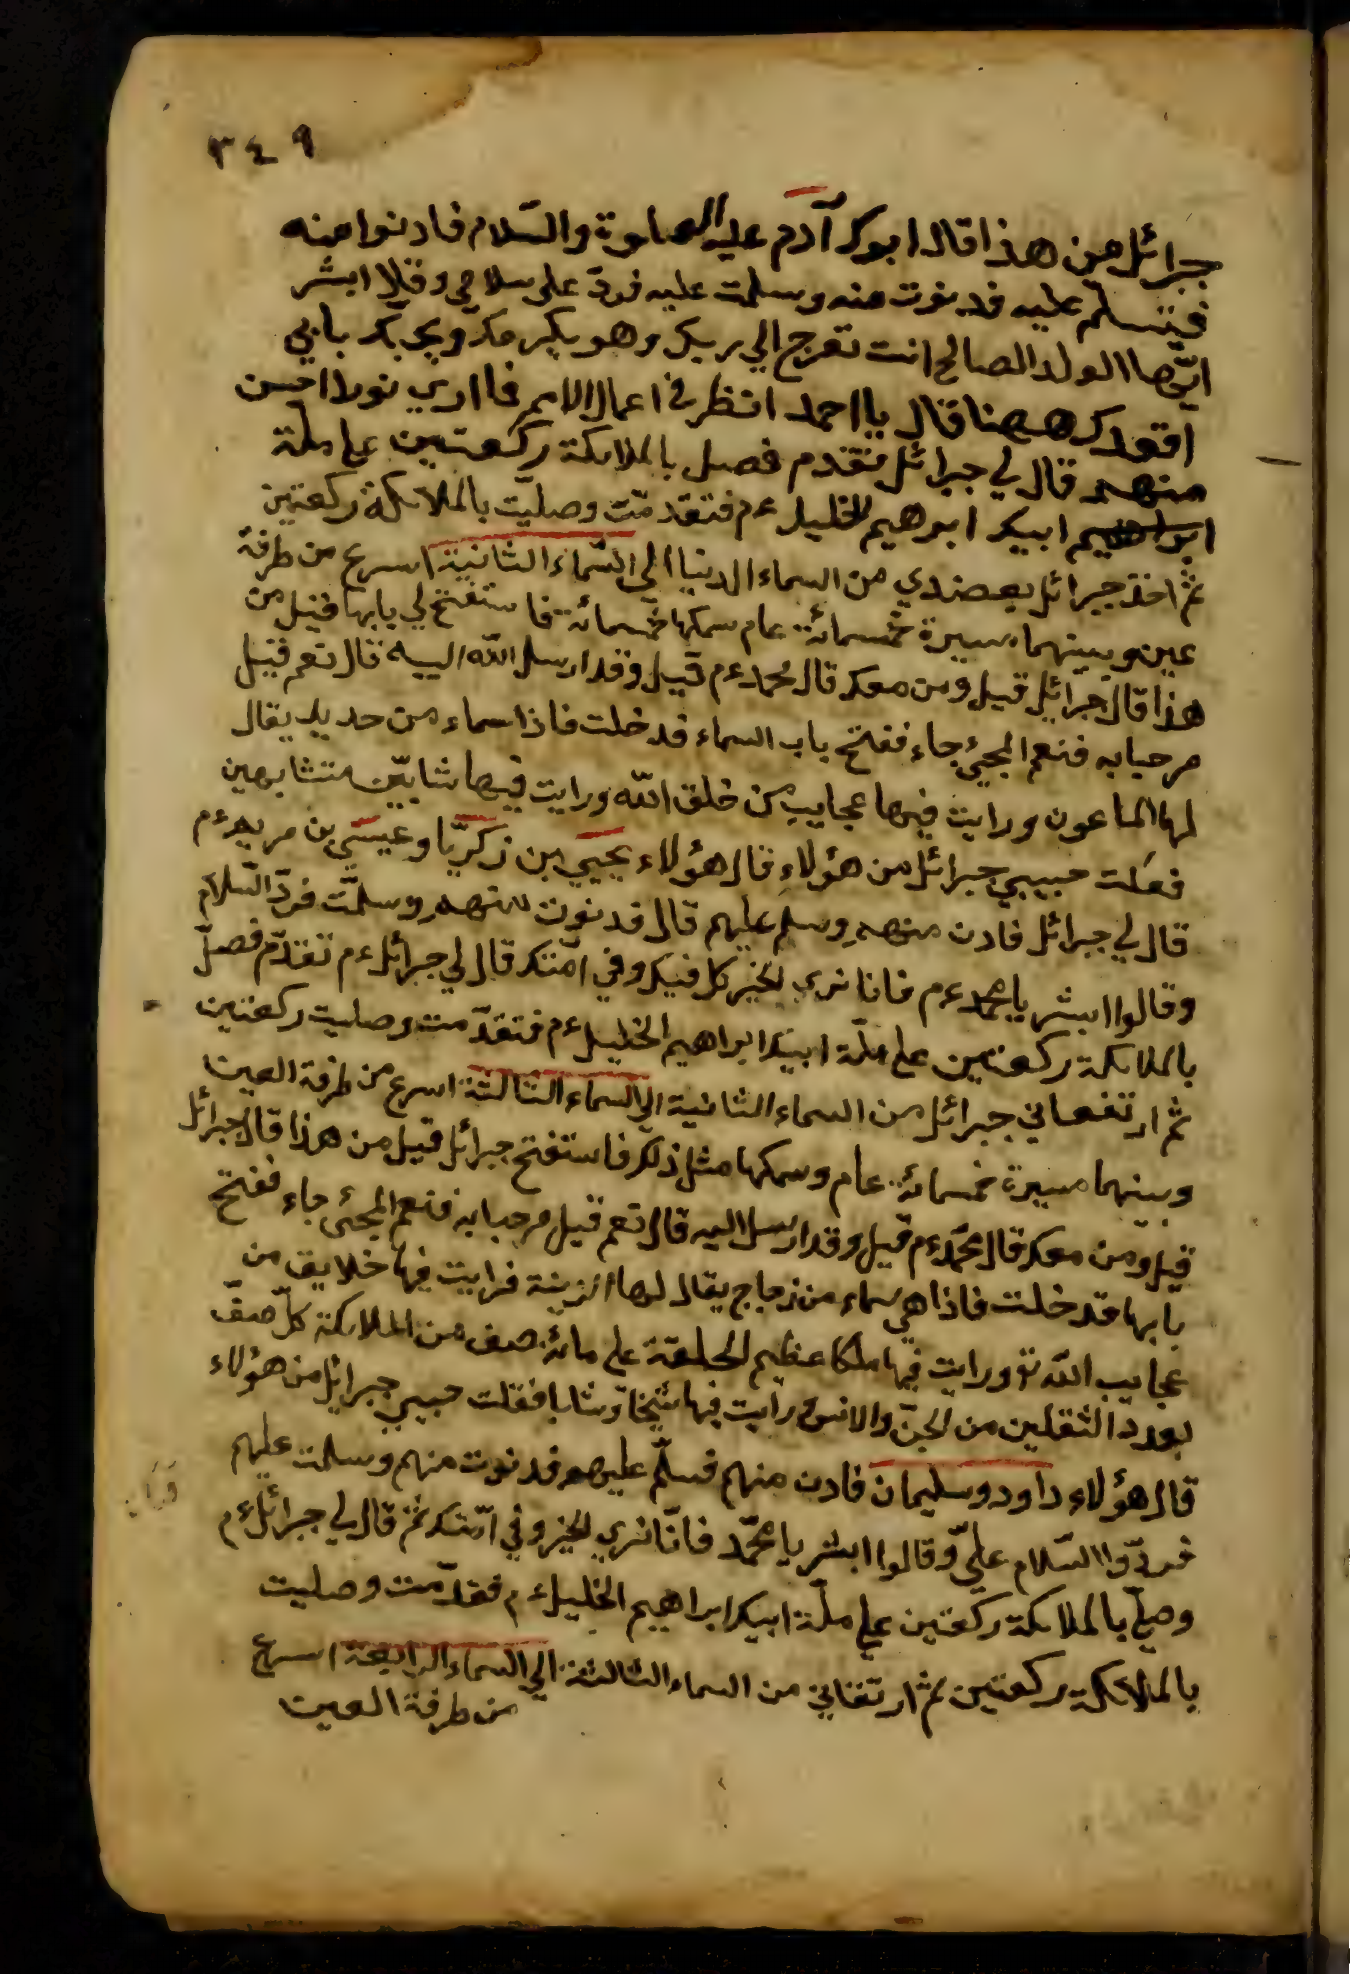 ٣٤٩
جبرائل من هذا قال ابوك آدم عليه الصلوة والسّلام فادنوا منه
فتسلم عليه فدنوت منه وسلمت عليه فردّ على سلامي وقال ابشر
ايّها الولد الصالح انت تعرج الي ربك وهو يكرمك ويحبك يا بني
اقعدك ههنا قال يا احمد انظر في اعمال الامم فما اري نورا احسن
منهم قال لي جبرائل تقدم فصل بالملائكة ركعتين علي ملّة
ابيك ابرهيم الخليل ءم فتقدمّت وصليّت بالملائكة ركعتين
ثم اخذ جبرائل بعضدي من السماء الدنيا الي السّماء الثانية اسرع من طرفة
عين وبينهما مسيرة خمسمائة عام سمكها خمسمائة فاستفتح لي بابها قيل من
هذا قال جبرائل قيل ومن معك قال محمد ءم قيل وقد ارسل الله اليه قال نعم قيل
مرحبا به فنعم المجئ جاء ففتح باب السماء فدخلت فاذا سماء من حديد يقال
لها الماعون ورايت فيها عجايب من خلق الله ورايت فيها شابيّن متشابهين
فقلت حبيبي جبرائل من هؤلاءِ قال هؤلاء يحيي بن زكريّا وعيسي بن مريم ءم
قال لي جبرائل فادن منهم وسلم عليهم قال فدنوت منهم وسلمّت فردّ السّلام
وقالوا ابشر يا محمد ءم فانا نري الخير كل فيك وفي امّتك قال لي جبرائل ءم تقدّم فصلّ
بالملائكة ركعتين علي ملّة ابيك ابراهيم الخليل ءم فتقدّمت وصليت ركعتين
ثم ارتفعاني جبرائل من السماء الثانية الي السماء الثالثة اسرع من طرفة العين
وبينهما مسيرة خمسمائة عام وسمكها مثل ذلك فاستفتح جبرائل قيل من هذا قال جبرائل
قيل ومن معك قال محمّد ءم قيل وقد ارسل اليه قال نعم قيل مرحبا به فنعم المجئ جاء ففتح
بابها فدخلت فاذا هي سماء من زجاج يقال لها الزينة فرايت فيها خلايق من
عجايب الله تع ورايت فيها ملكا عظيم الخلقة علي مائة صف من الملائكة كلّ صفّ
بعدد الثقلين من الجنّ والانس ورايت فيها شيخا وشابا فقلت حبيبي جبرايل من هؤلاء
قال هؤلاء داود وسليمان فادن منهم فسلّم عليهم فدنوت منهم وسلمت عليهم
فردّوا السّلام عليّ وقالوا ابشر يا محمّد فانّا نري الخير وفي امّتك ثم قال لي جبرائل ءم
وصلّ بالملائكة ركعتين علي ملّة ابيك ابراهيم الخليل ءم فقدّمت وصليت
بالملائكة ركعتين ثم ارتفاني من السماء الثالثة الي السماء الرابعة اسرع
من طرفة العين